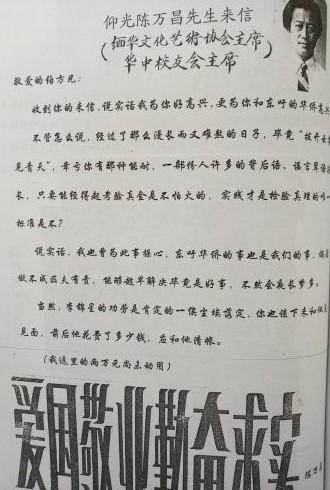 仰光陈万昌先生来信
(缅华文化艺術协会主席)
华中校友会主席
敬爱的伯方兄:
收到你的来信,说实话我为你好高兴,更为你和东吁的华侨高兴
不管怎么说,经过了那么漫长而又难熬的日子,毕竟“拨开云
见青天”,幸亏你有那种能耐,一部份人许多的背后话、谎言箪语
长,只要能经得起考验真金是不怕火的,实践才是检验真理的唯一
标准是不?
说实话,我也曾为此事操心,东吁华侨的事也是我们的事,
做不成匹夫有责,能够趁早解决毕竟是好事,不然会夜长梦多。
当然,李锦星的功劳是肯定的一俟尘埃落定,你也该下来和他
见面,前后他花费了多少钱,应和他清账。
(我这里的两万元尚未动用)
爱国敬业 奋求
陈万